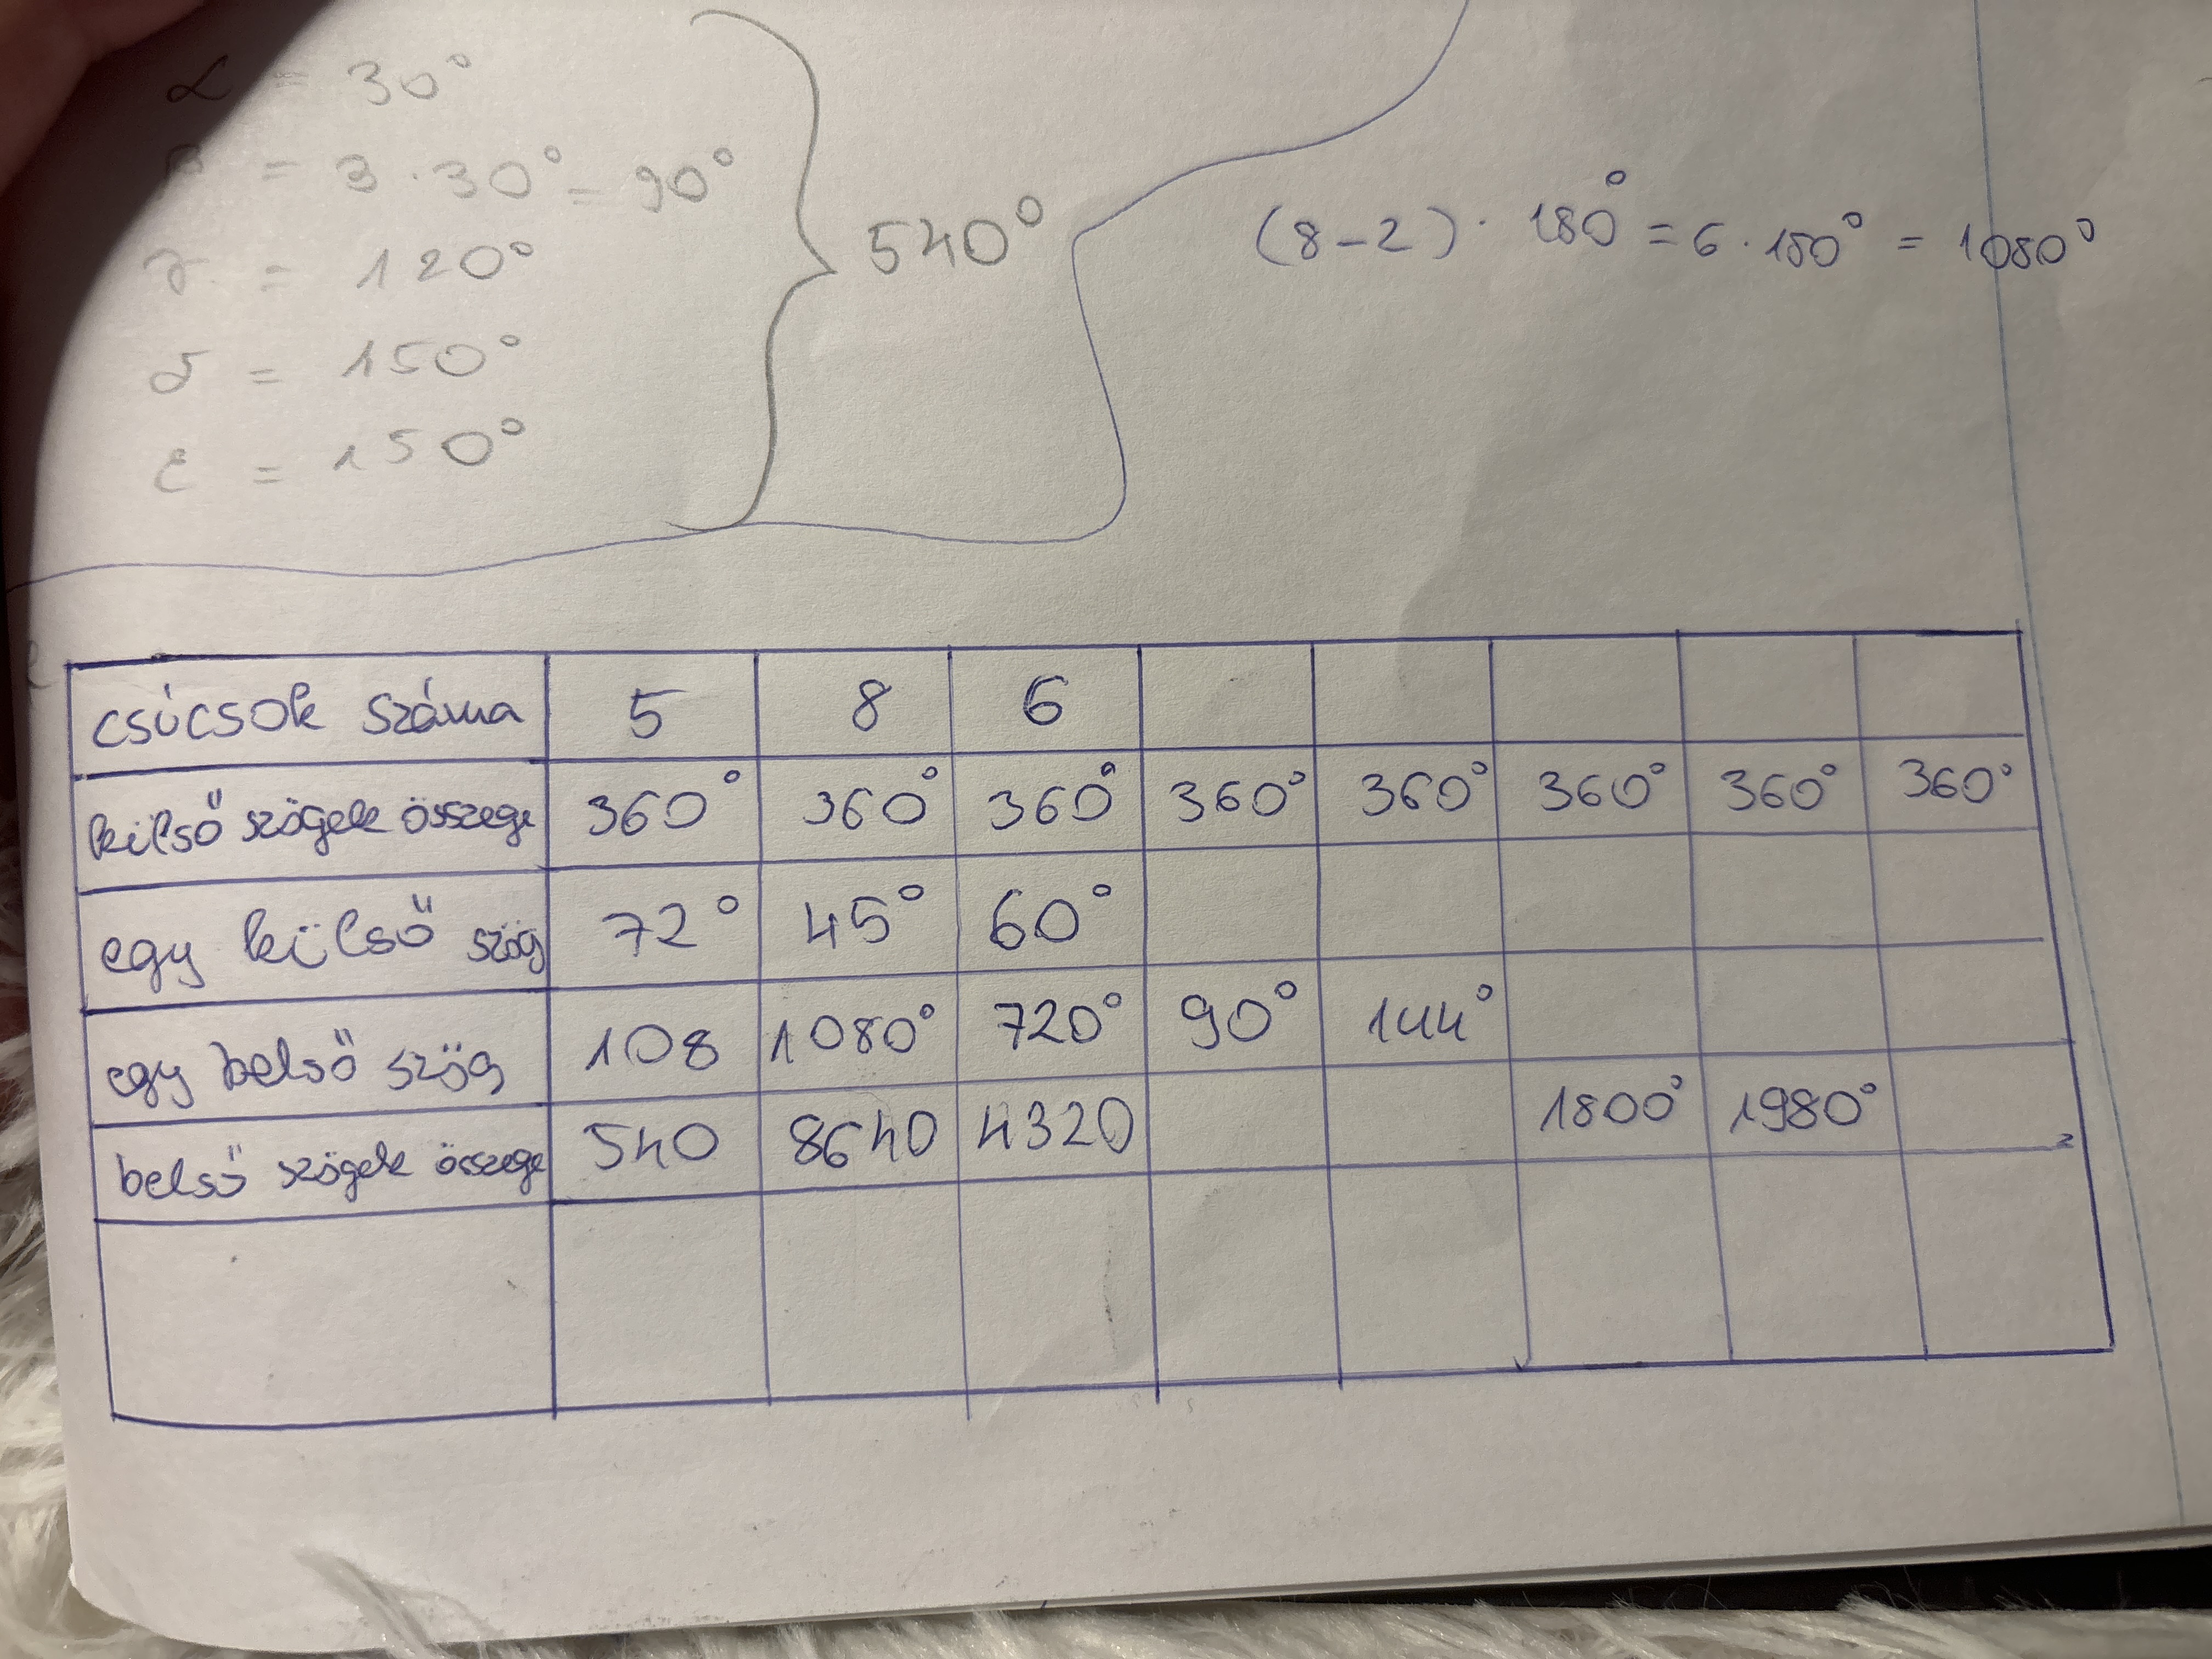 α = 30°
β = 3 · 30° = 90°
γ = 120°
δ = 150°
ε = 150°
540°
(8-2) · 180° = 6 · 180° = 1080°
csúcsok száma 5 8 6
külső szögek összege 360° 360° 360° 360° 360° 360° 360° 360°
egy külső szög 72° 45° 60°
egy belső szög 108 1080° 720° 90° 144°
belső szögek összege 540 8640 4320 1800° 1980°